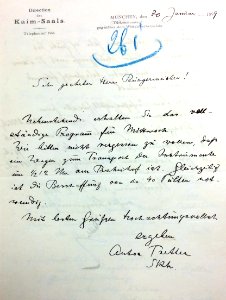 Direction
des
Kaim-Saals.
Telephon
MÜNCHEN, den 26 Januar
261
Sehr geehrter Herr Bürgermeister!
erhalten Sie das voll-
ständige Programm für Mittwoch.
Wir bitten nicht vergessen zu wollen, daß
ein Wagen zum Transport der Instrumente
um 1/2 12 Uhr am Bahnhof ist. Gleichzeitig
ist die Beschaffung von 40 Pulten not-
wendig.
Mit besten Grüßen hochachtungsvollst
ergeben